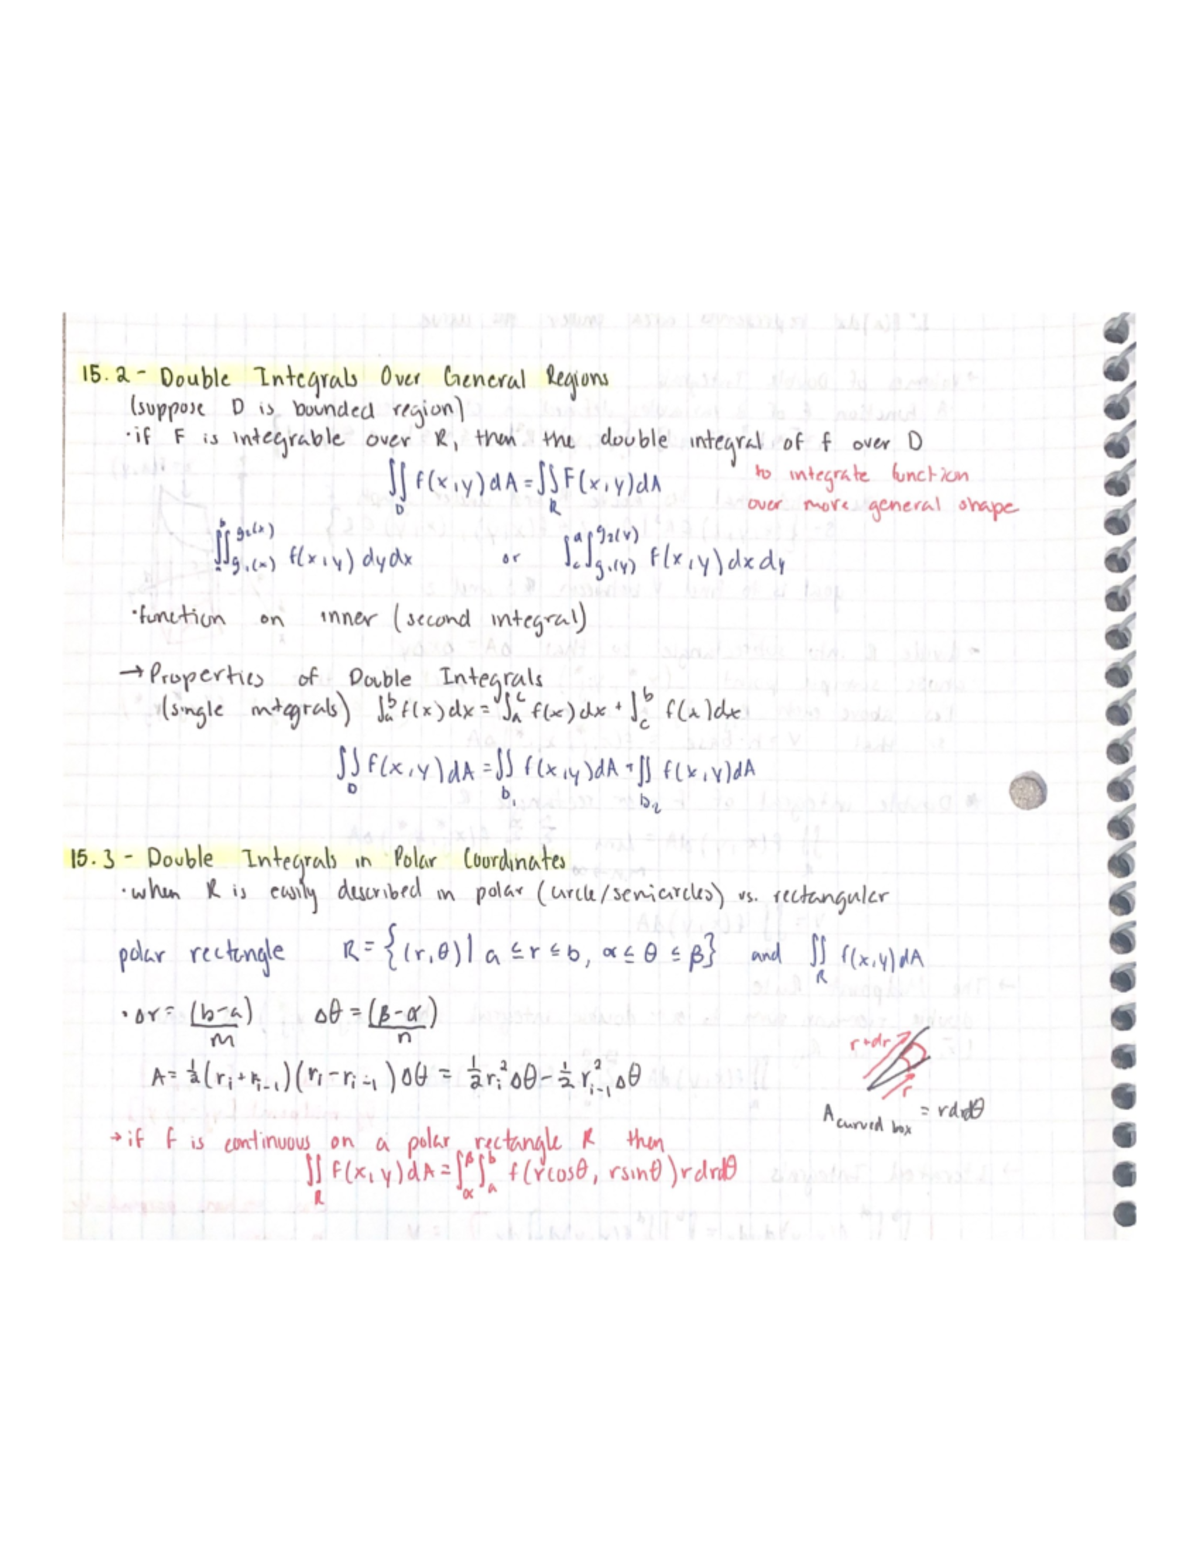 15.2 - Double Integrals Over General Regions
(suppose D is bounded region)
·if F is integrable over R, then the double integral of f over D
∬_D f(x,y)dA = ∬_R F(x,y)dA
to integrate function
over more general shape
∬_{g₁(x)}^{g₂(x)} f(x,y) dydx or ∫_c^d ∫_{g₁(y)}^{g₂(y)} f(x,y) dxdy
·function on inner (second integral)
→ Properties of Double Integrals
(single integrals) ∫_a^b f(x)dx = ∫_a^c f(x)dx + ∫_c^b f(x)dx
∬_D f(x,y)dA = ∬_{D₁} f(x,y)dA + ∬_{D₂} f(x,y)dA
15.3 - Double Integrals in Polar Coordinates
·when R is easily described in polar (circle/semicircles) vs. rectangular
polar rectangle R = {(r,θ) | a ≤ r ≤ b, α ≤ θ ≤ β} and ∬_R f(x,y)dA
·Δr = (b-a)/m Δθ = (β-α)/n
r+dr
r
A = ½(rᵢ + rᵢ₋₁)(rᵢ - rᵢ₋₁)Δθ = ½rᵢ²Δθ - ½rᵢ₋₁²Δθ
A curved box = rdrdθ
→ if f is continuous on a polar rectangle R then
∬_R f(x,y)dA = ∫_α^β ∫_a^b f(rcosθ, rsinθ)rdrdθ